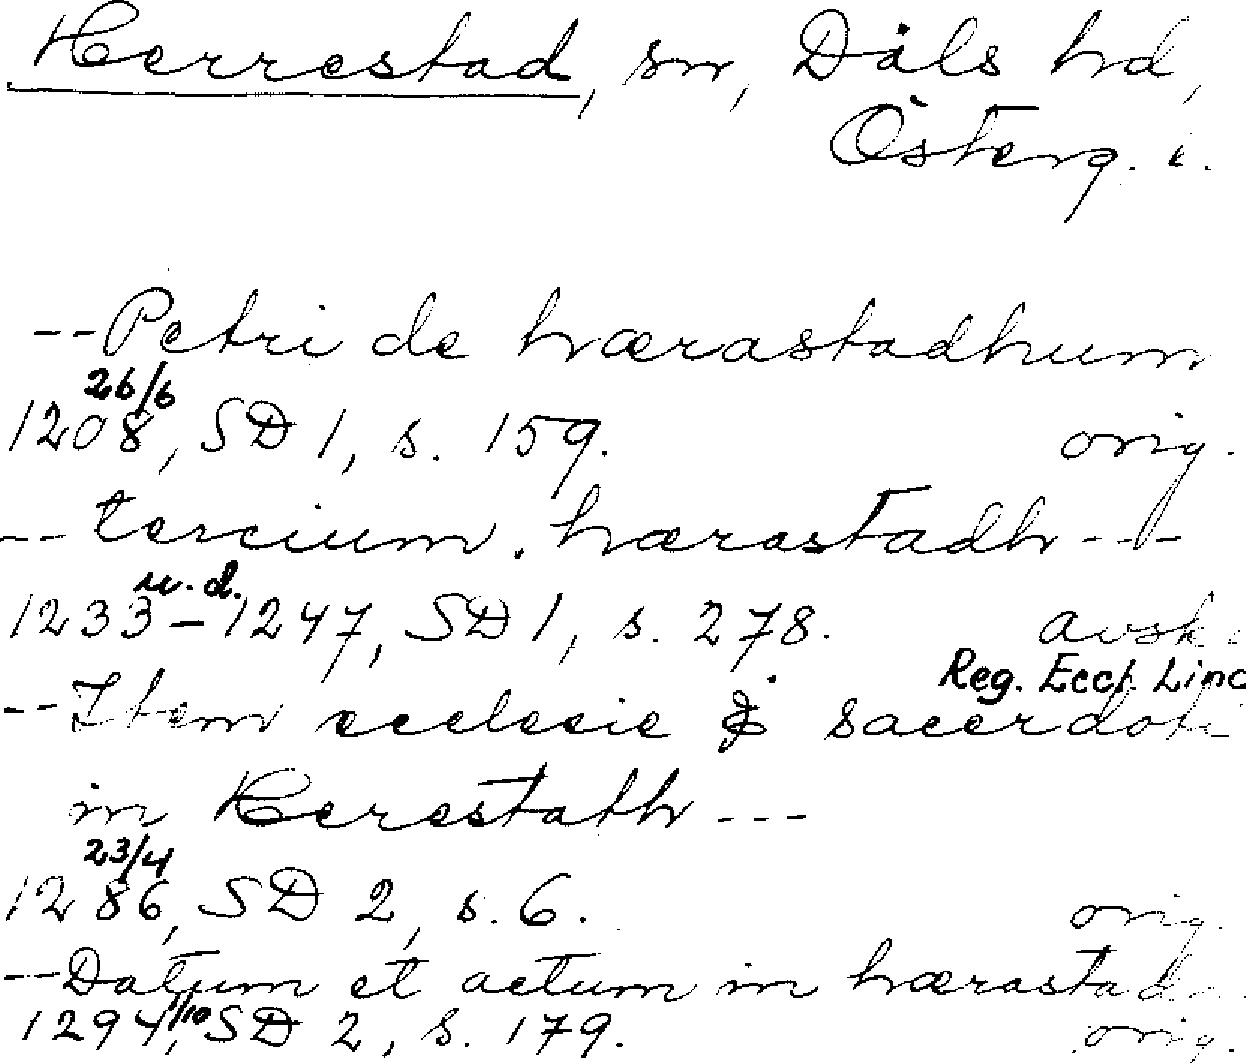 Herrestad, sn, Dals hd,
Österg. l.
--Petri de hærastadhum
26/6
1208, SD 1, s. 159. orig.
--tercium. hærastadh---
u. d.
1233-1247, SD 1, s. 278. avskr.
Reg. Eccl. Linc
--Item ecclesie & sacerdoti
in Herestath---
23/4
1286, SD 2, s. 6. orig.
--Datum et actum in hærastad
1294 1/10, SD 2, s. 179. orig.